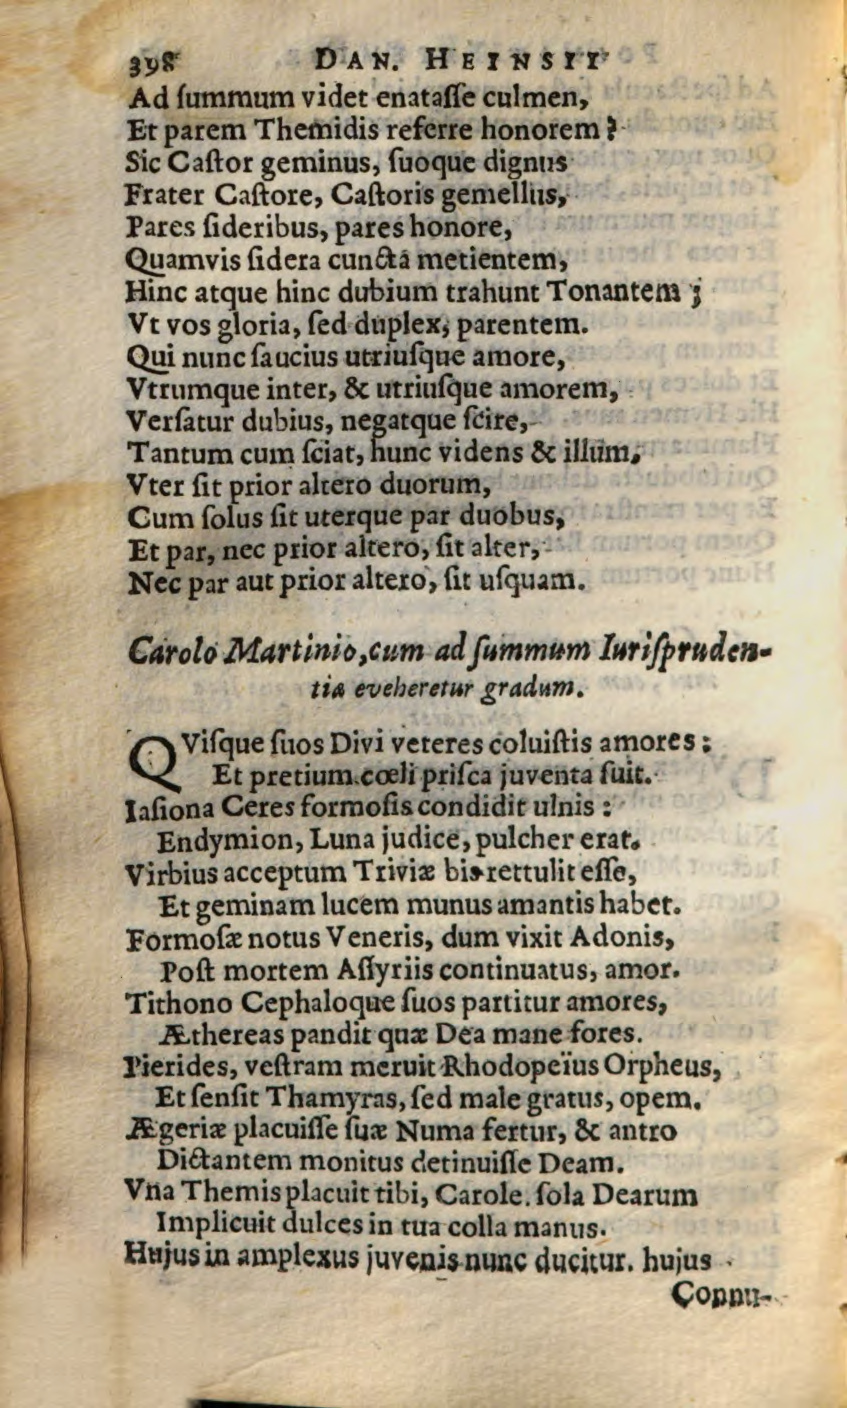 398 DAN. HEINSII
Ad ſummum videt enataſſe culmen,
Et parem Themidis referre honorem?
Sic Caſtor geminus, ſuoque dignus
Frater Caſtore, Caſtoris gemellus,
Pares ſideribus, pares honore,
Quamvis ſidera cuncta metientem,
Hinc atque hinc dubium trahunt Tonantem;
Vt vos gloria, ſed duplex, parentem.
Qui nunc ſaucius utriuſque amore,
Vtrumque inter, & utriuſque amorem,
Verſatur dubius, negatque ſcire,
Tantum cum ſciat, hunc videns & illum,
Vter ſit prior altero duorum,
Cum ſolus ſit uterque par duobus,
Et par, nec prior altero, ſit alter,
Nec par aut prior altero, ſit uſquam.
Carolo Martinio, cum ad ſummum Iuriſpruden-
tia eveheretur gradum.
QViſque ſuos Divi veteres coluiſtis amores:
Et pretium cœli priſca juventa fuit.
Iaſiona Ceres formoſis condidit ulnis:
Endymion, Luna judice, pulcher erat.
Virbius acceptum Triviæ bis rettulit eſſe,
Et geminam lucem munus amantis habet.
Formoſæ notus Veneris, dum vixit Adonis,
Poſt mortem Aſſyriis continuatus, amor.
Tithono Cephaloque ſuos partitur amores,
Æthereas pandit quæ Dea mane fores.
Pierides, veſtram meruit Rhodopeïus Orpheus,
Et ſenſit Thamyras, ſed male gratus, opem.
Ægeriæ placuiſſe ſuæ Numa fertur, & antro
Dictantem monitus detinuiſſe Deam.
Vna Themis placuit tibi, Carole. ſola Dearum
Implicuit dulces in tua colla manus.
Hujus in amplexus juvenis nunc ducitur. hujus
Connu-